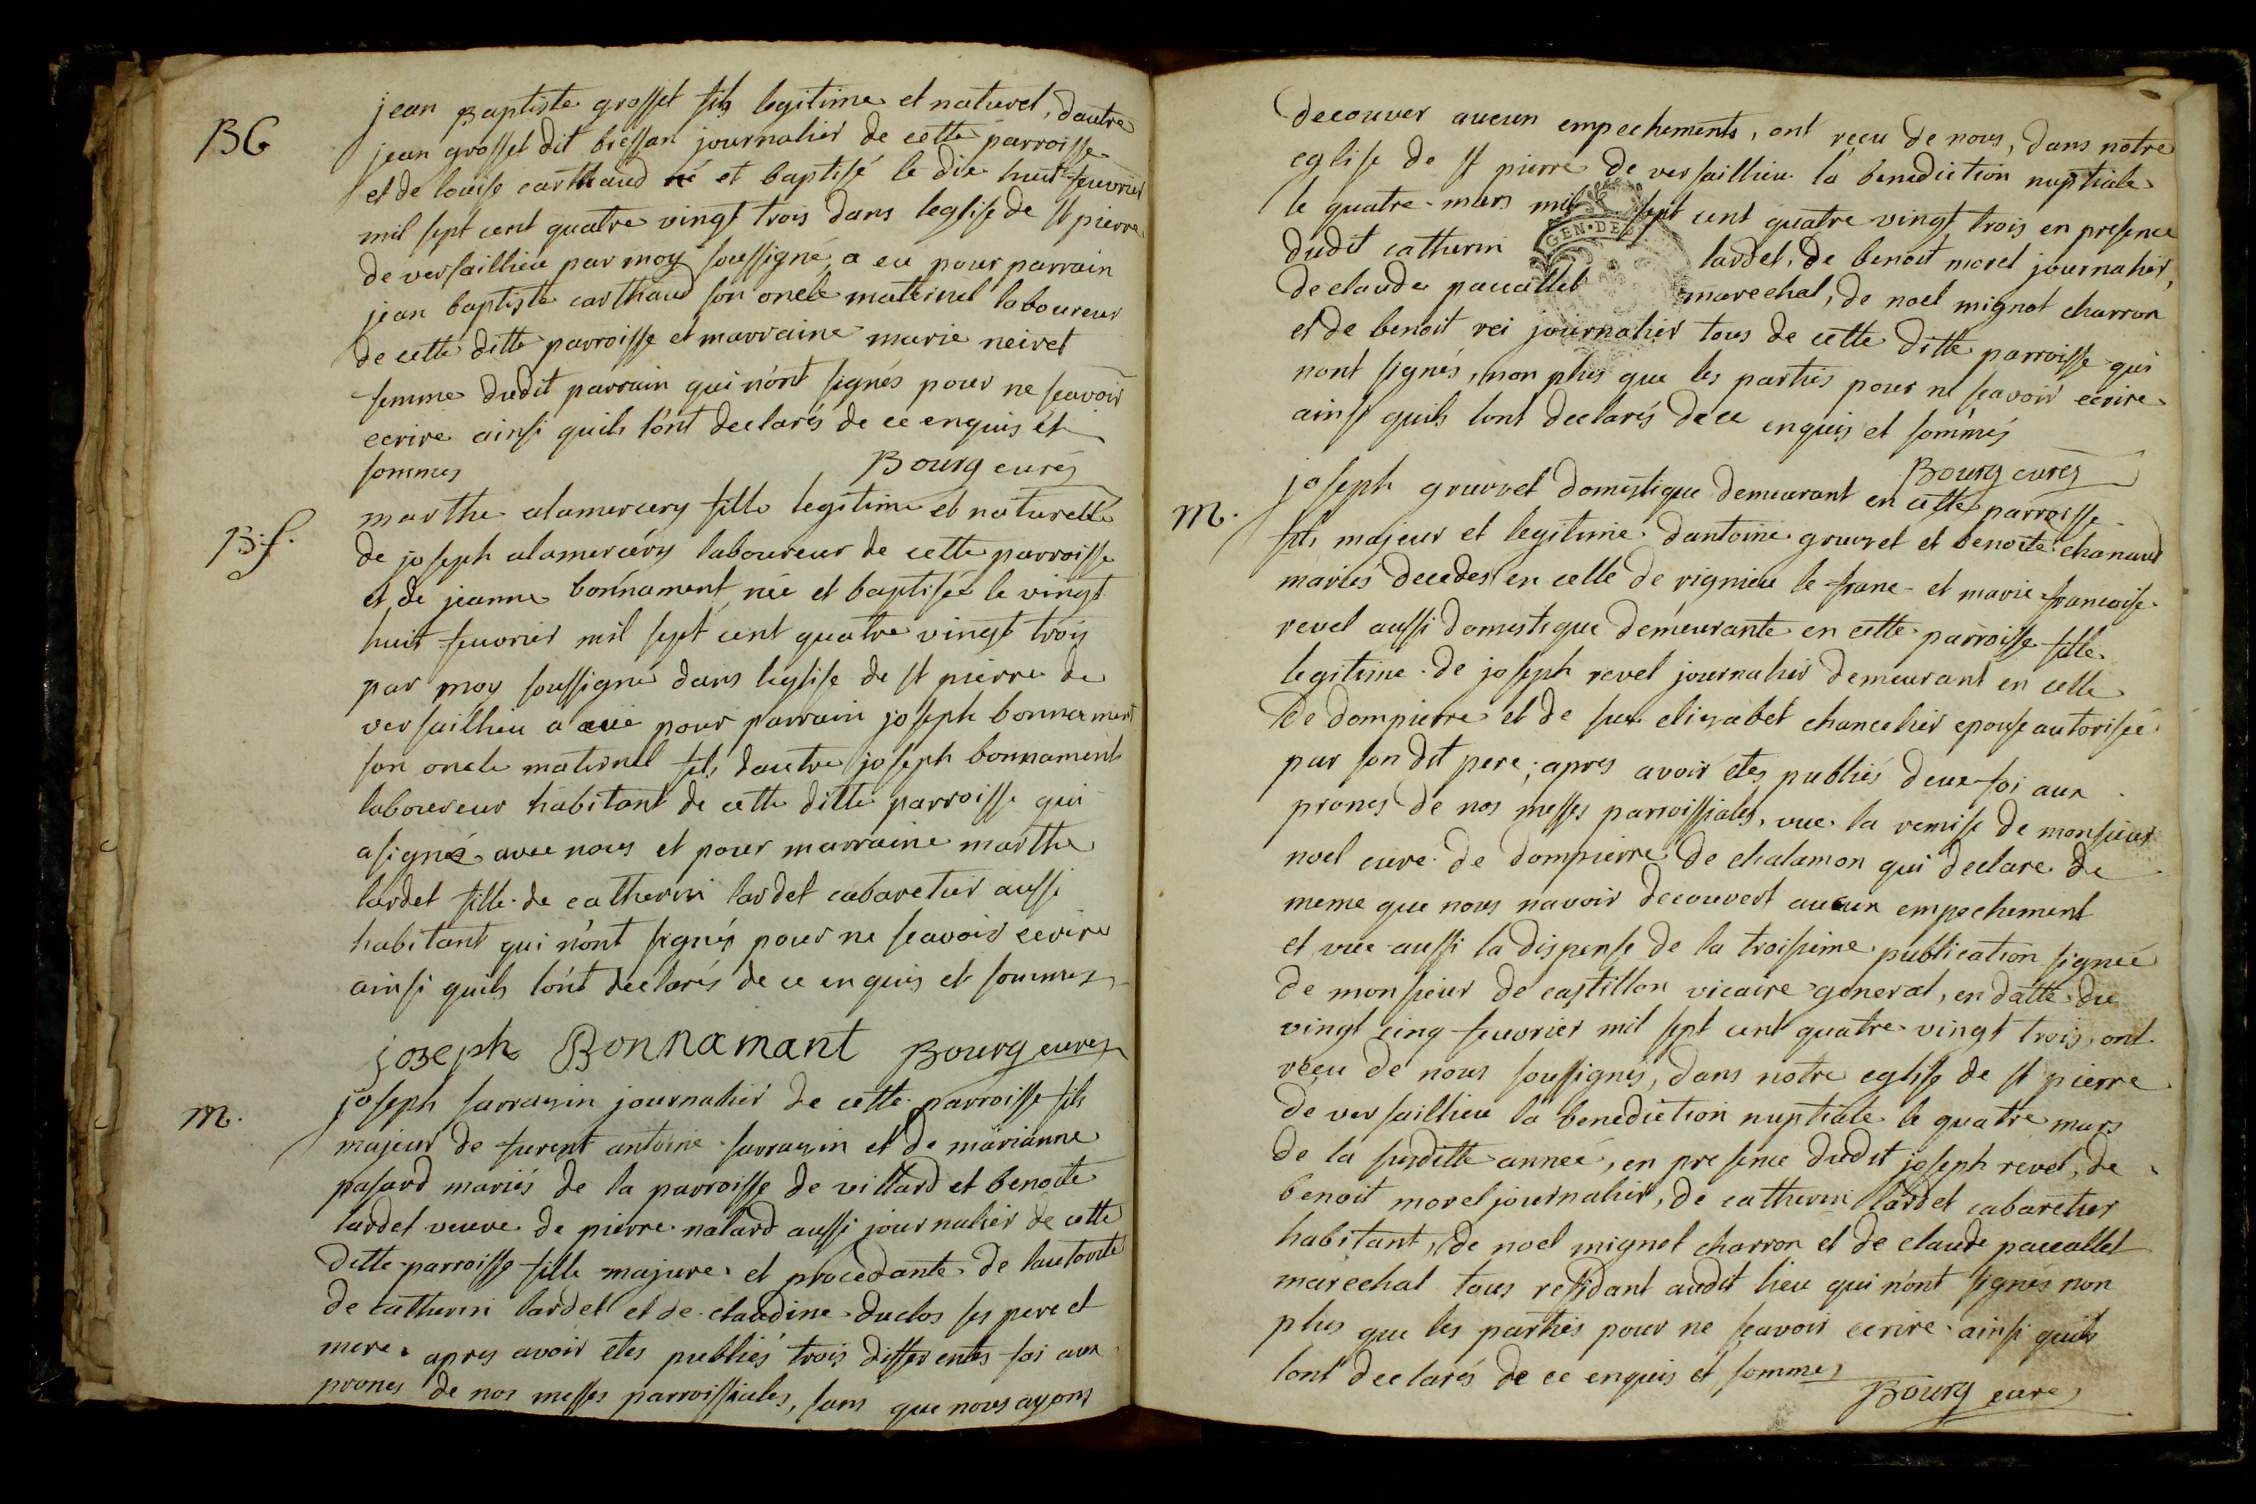 BG
jean Baptiste grosset fils legitime et naturel, dautre
jean grosset dit bressan journalier de cette parroisse
et de louise carthaud né et baptisé le dix huit feuvrier
mil sept cent quatre vingt trois dans leglise de st pierre
de versaillieu par moy soussigné, a eu pour parrain
jean baptiste carthaud son oncle maternel laboureur
de cette ditte parroisse et marraine marie neiret
femme dudit parrain qui n'ont signés pour ne scavoir
ecrire ainsi quils l'ont declarés de ce enquis et
sommes Bourg curé
B.f.
marthe alamercery fille legitime et naturelle
de joseph alamercéry laboureur de cette parroisse
et de jeanne bonnament née et baptisée le vingt
huit feuvrier mil sept cent quatre vingt trois
par moy soussigné dans leglise de st pierre de
versaillieu a eue pour parrain joseph bonnament
son oncle maternel fils dautre joseph bonnament
laboureur habitant de cette ditte parroisse qui
a signé avec nous et pour marraine marthe
lardet fille de catherin lardet cabaretier aussi
habitant qui n'ont signés pour ne scavoir ecrire
ainsi quils l'ont declarés de ce enquis et sommes
joseph Bonnamant Bourg curé
M.
joseph sarrazin journalier de cette parroisse fils
majeur de furent antoine sarrazin et de marianne
pasard mariés de la parroisse de villard et benoite
lardet veuve de pierre nalard aussi journalier de cette
ditte parroisse fille majure et procedante de lautorité
de catherin lardet et de claudine duclos ses pere et
mere. apres avoir etes publiés trois differentes foi aux
prones de nos messes parroissiales, sans que nous ayons
decouver aucun empechements, ont reçu de nous, dans notre
eglise de st pierre de versaillieu la benediction nuptiale
le quatre mars mil sept cent quatre vingt trois en presence
dudit catherin lardet, de benoit morel journalier,
GEN. DE
de claude paccallet marechal, de noel mignot charron
et de benoit rei journalier tous de cette ditte parroisse qui
n'ont signés, non plus que les parties pour ne scavoir ecrire
ainsi quils l'ont declarés de ce enquis et sommés
Bourg curé
M.
joseph gruvet domestique demeurant en cette parroisse
fils majeur et legitime dantoine gruvet et benoite chanaud
mariés decedes en celle de rignieu le franc et marie francoise
revel aussi domestique démeurante en cette parroisse fille
legitime de joseph revel journalier demeurant en celle
de dompierre et de feu elizabet chancelier epouse autorisée
par son dit pere; apres avoir etes publiés deux foi aux
prones de nos messes parroissiales, vue la remise de monsieur
noel cure de dompierre de chalamon qui declare de
meme que nous navoir decouvert aucun empechement
et vue aussi la dispense de la troisieme publication signée
de monsieur de castillon vicaire general, en datte du
vingt cinq feuvrier mil sept cent quatre vingt trois, ont
recu de nous soussignés, dans notre eglise de st pierre
de versaillieu la benediction nuptiale le quatre mars
de la susditte année, en presence dudit joseph revel, de
benoit morel journalier, de catherin lardet cabaretier
habitant, de noel mignot charron et de claude paccallet
maréchal tous residant audit lieu qui n'ont signés non
plus que les parties pour ne scavoir ecrire ainsi quils
l'ont declarés de ce enquis et sommes
Bourg curé